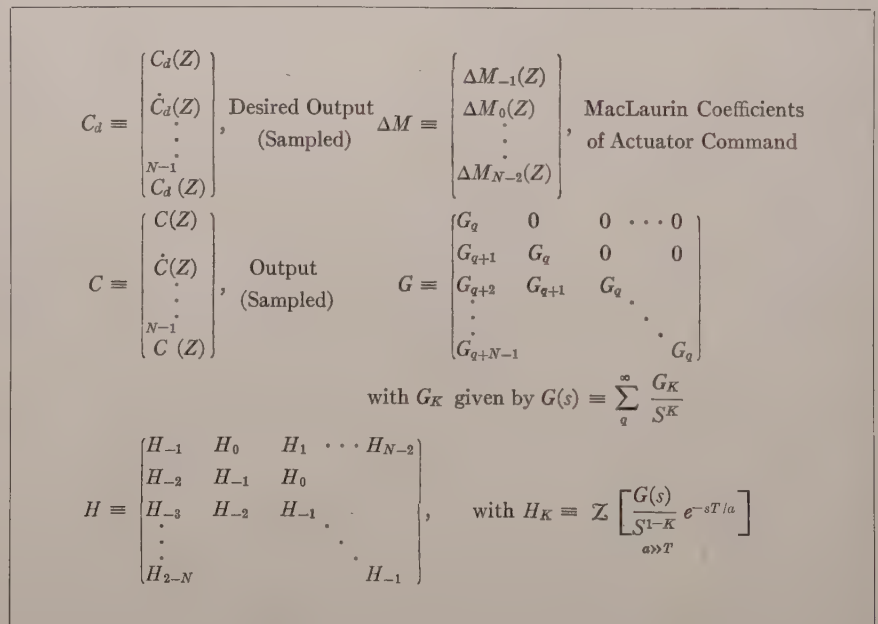 C_d ≡ [C_d(Z) ; Ċ_d(Z) ; ⋮ ; N−1 C_d (Z)], Desired Output (Sampled) ΔM ≡ [ΔM_{−1}(Z) ; ΔM_0(Z) ; ⋮ ; ΔM_{N−2}(Z)], MacLaurin Coefficients of Actuator Command
C ≡ [C(Z) ; Ċ(Z) ; ⋮ ; N−1 C (Z)], Output (Sampled) G ≡ [G_q 0 0 ··· 0 ; G_{q+1} G_q 0 0 ; G_{q+2} G_{q+1} G_q ; ⋮ ⋱ ; G_{q+N−1} G_q]
with G_K given by G(s) ≡ ∑_q^∞ G_K / S^K
H ≡ [H_{−1} H_0 H_1 ··· H_{N−2} ; H_{−2} H_{−1} H_0 ; H_{−3} H_{−2} H_{−1} ; ⋮ ⋱ ; H_{2−N} H_{−1}], with H_K ≡ Z [G(s) / S^{1−K} e^{−sT/a}]
a≫T